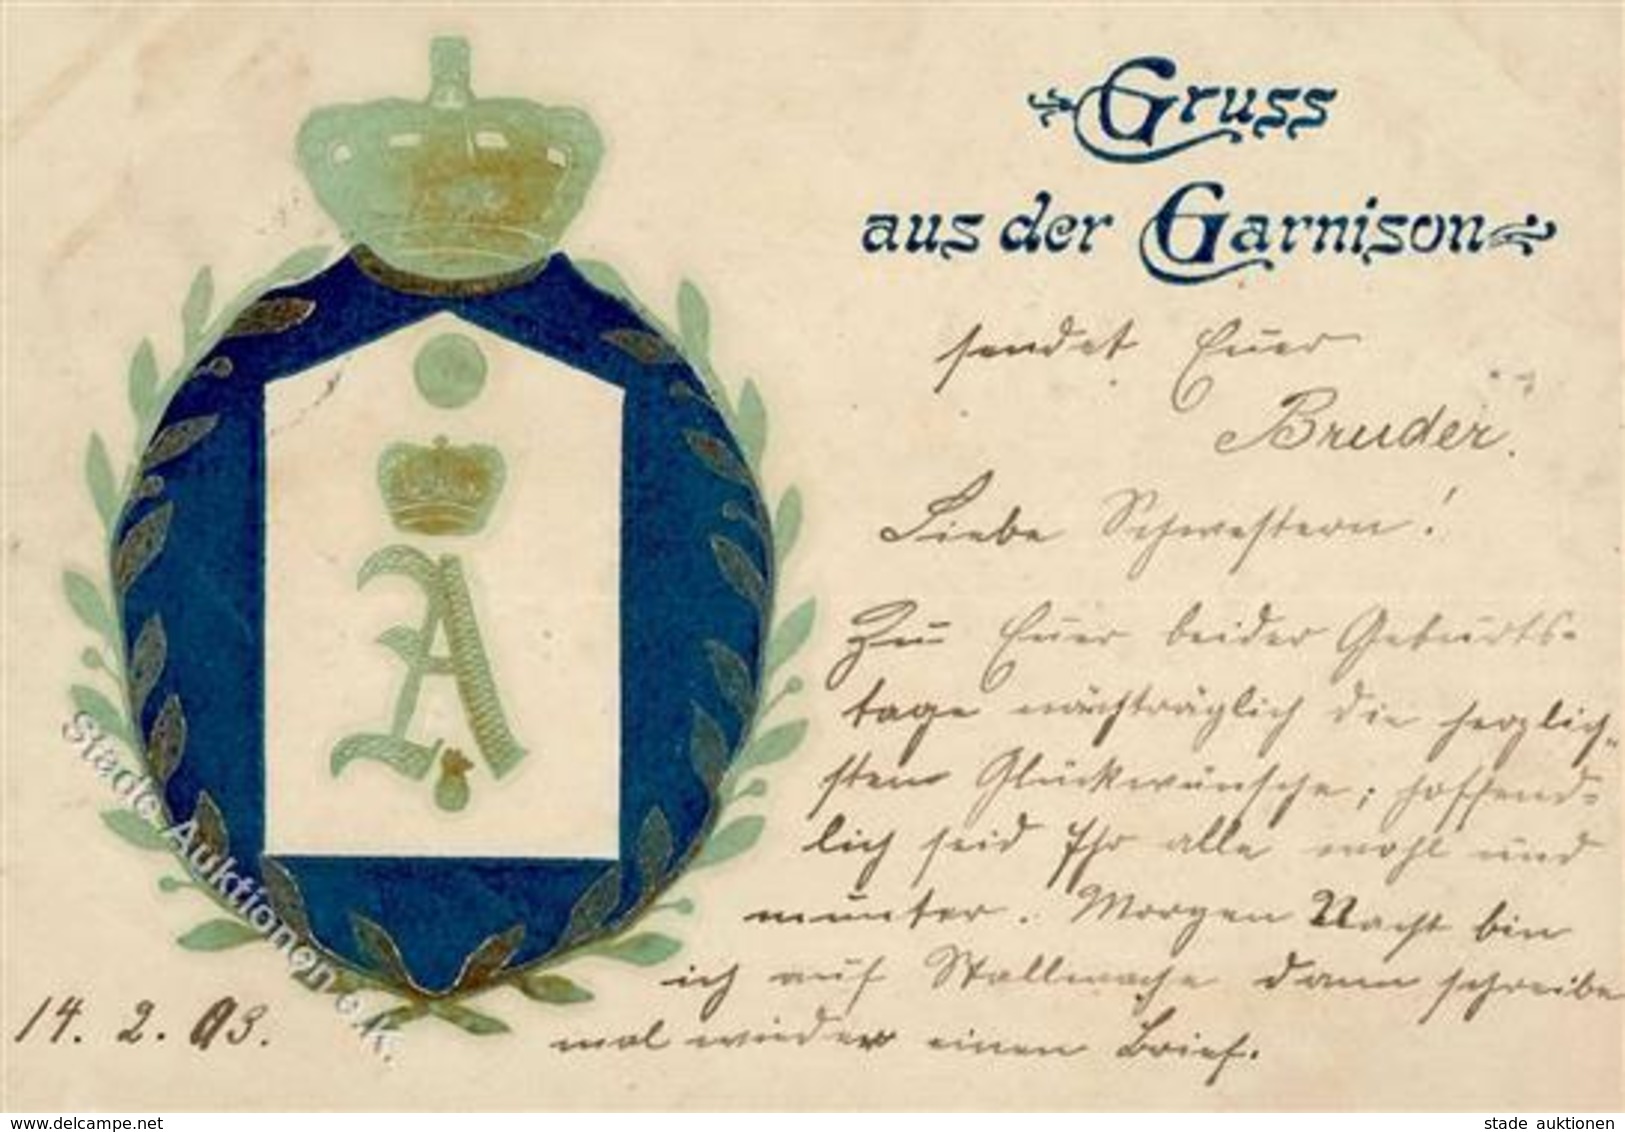 Gruss
aus der Garnison
sendet Euer
Bruder.
Liebe Schwestern!
Zu Euer beider Geburts-
tage nachträglich die herzlich-
sten Glückwünsche; hoffend-
lich seid Ihr alle wohl und
munter. Morgen Nacht bin
ich auf Stallwache dann schreibe
mal wieder einen Brief.
14. 2. 03.
A
Stade Auktionen e.K.
www.delcampe.net
stade auktionen